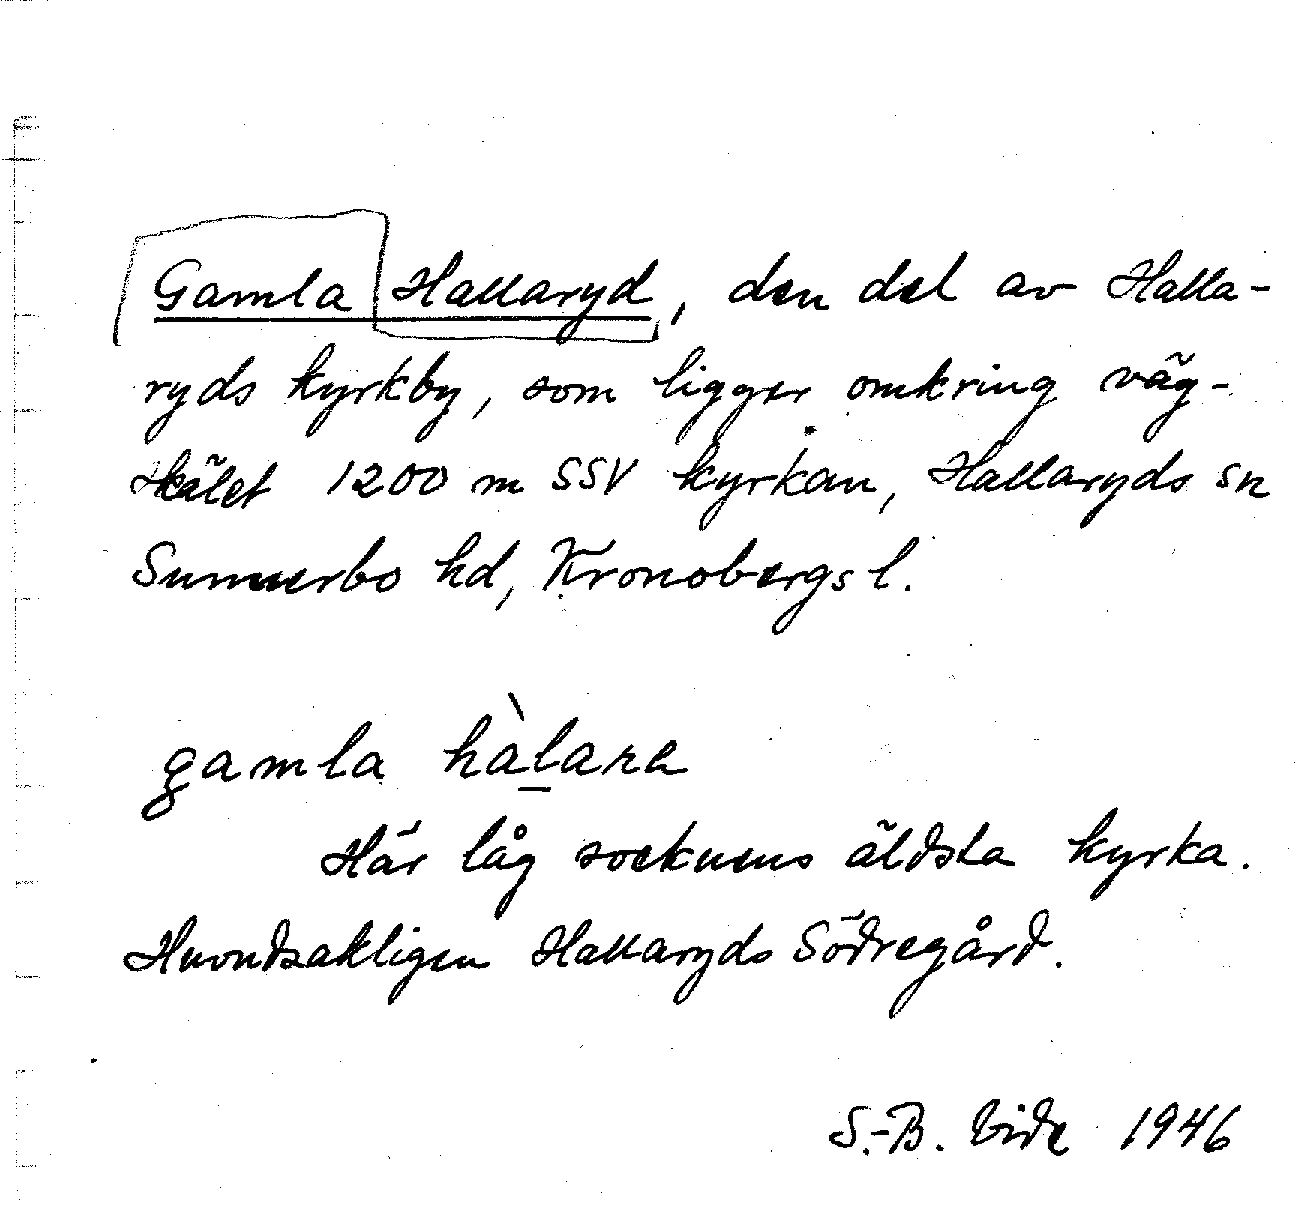 Gamla Hallaryd, den del av Halla-
ryds kyrkby, som ligger omkring väg-
skälet 1200 m SSV kyrkan, Hallaryds sn
Sunnerbo hd, Kronobergs l.
gamla hàlara
Här låg socknens äldsta kyrka.
Huvudsakligen Hallaryds Södregård.
S.-B. Vide 1946